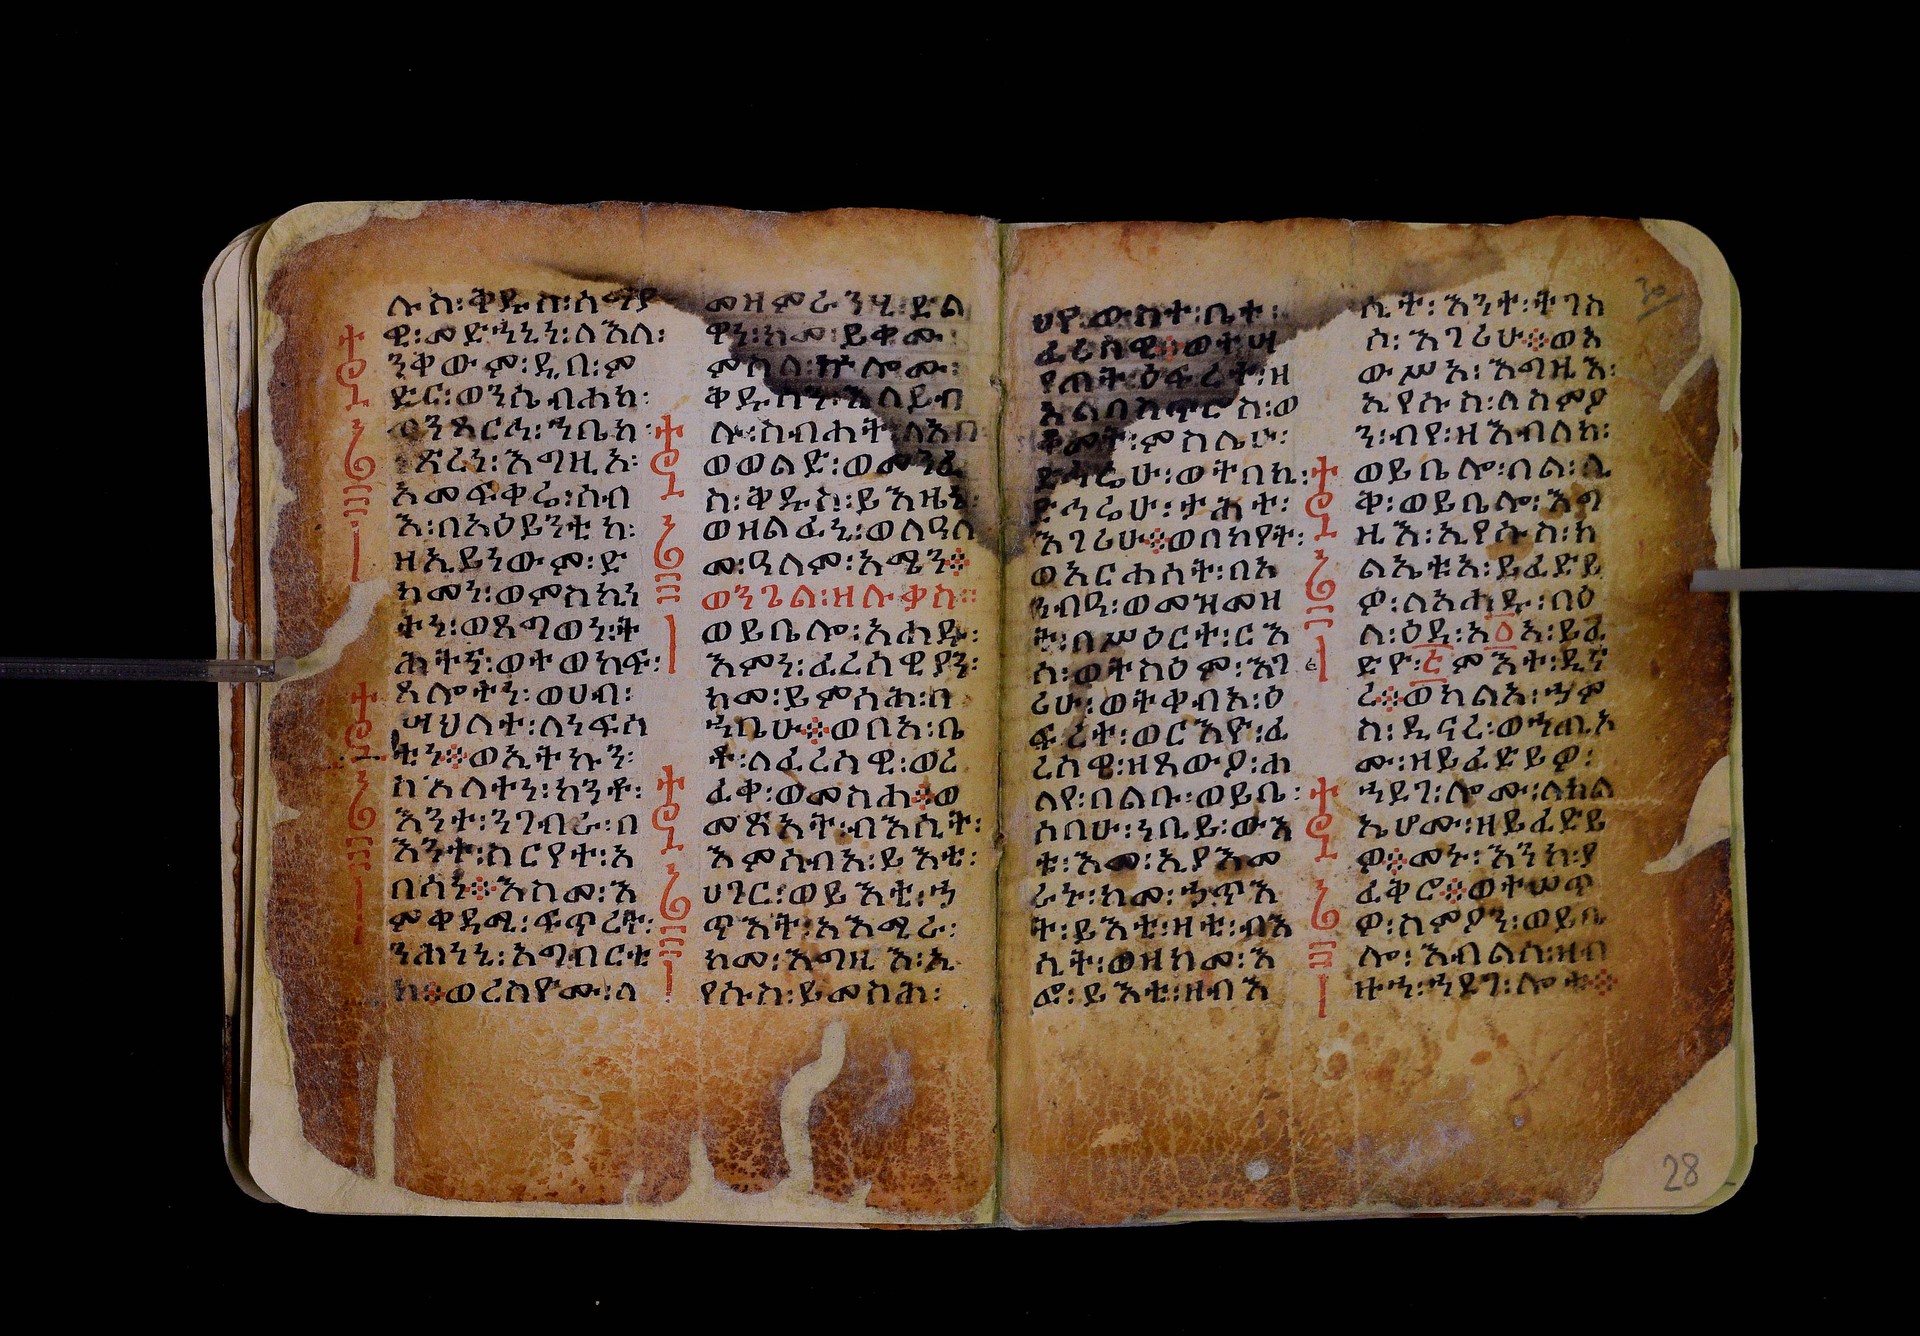 ሉስ፡ቅዱስ፡ስማያ
ዊ፡መድኀኒነ፡ለእለ፡
ንቅውም፡ዲበ፡ም
ድር፡ወንሴብሐከ፡
ጸረነ፡እግዚኦ፡
አመፍቀሬ፡ሰብ
እ፡በአዕይንቲከ፡
ዘኢይነውም፡ድ
ካመነ፡ወምስኪነ
ትነ፡ወጸግወነ፡ት
ሕትና፡ወተወከፍ፡
ጸሎተነ፡ወሀብ፡
ሣህለተ፡ለነፍሰ
ቲነ፨ወኢትኩን፡
ስእለተነ፡ከንቶ፡
እንተ፡ንገብራ፡በ
እንተ፡ስርየተ፡አ
በሳነ፨እስመ፡እ
ምቀዳሚ፡ፍጥረት፡
ንሕነኒ፡አግብርቲ
ከ፨ወረስዮሙ፡ለ
መዘምራንሂ፡ድል
ዋነ፡ከመ፡ይቁሙ፡
ምስለ፡ኵሎሙ፡
ቅዱሳን፡እለይብ
ሉ፡ስብሐት፡ለአብ
ወወልድ፡ወመንፈ
ስ፡ቅዱስ፡ይእዜኒ
ወዘልፈኒ፡ወለዓለ
መ፡ዓለም፡አሜን፨
ወንጌል፡ዘሉቃስ።
ወይቤሎ፡አሐዱ፡
እምነ፡ፈረሳዊያን፡
ከመ፡ይምሳሕ፡በ
ኀቤሁ፨ወቦአ፡ቤ
ቶ፡ለፈረሳዊ፡ወረ
ፈቀ፡ወመስሐ፨ወ
መጽአት፡ብእሲት፡
እምሰብአ፡ይእቲ፡
ሀገር፡ወይእቲ፡ኃ
ጥእት፡አእሚራ፡
ከመ፡እግዚእ፡ኢ
የሱስ፡ይመስሕ፡
ሀየ፡ውስተ፡ቤተ፡
ፈሪሳዊ፨ወተሣ
የጠት፡ዕፍረተ፡ዘ
አልባስጥሮስ፡ወ
ቆመት፡ምስሌሁ፡
ድኅሬሁ፡ወትበኪ፡
ድኅሬሁ፡ታሕተ፡
እገሪሁ፨ወበከየት፡
ወአርሐሰት፡በአ
ንብዓ፡ወመዝመዘ
ት፡በሥዕርተ፡ርእ
ሳ፡ወትስዕም፡እገ
ሪሁ፡ወትቀብእ፡ዕ
ፍረተ፡ወርእዮ፡ፈ
ረሳዊ፡ዘጸውዖ፡ሐ
ለየ፡በልቡ፡ወይቤ፡
ሶበሁ፡ነቢይ፡ውእ
ቱ፡እመ፡ኢያእመ
ራኑ፡ከመ፡ኃጥእ
ት፡ይእቲ፡ዛቲ፡ብእ
ሲት፡ወዘከመ፡እ
ፎ፡ይእቲ፡ዛብእ
ሲት፡እንተ፡ትገስ
ስ፡እገሪሁ፨ወአ
ውሥአ፡እግዚእ፡
ኢየሱስ፡ለስምዖ
ን፡ብየ፡ዘእብለከ፡
ወይቤሎ፡በል፡ሊ
ቅ፡ወይቤሎ፡እግ
ዚእ፡ኢየሱስ፡ክ
ልኤቱአ፡ይፈድይ
ዎ፡ለአሐዱ፡በዕ
ል፡ዕዳ፡አ፭አ፡ይፈ
ድዮ፡፭ምእተ፡ዲና
ረ፨ወካልእ፡ኀም
ሳ፡ዲናረ፡ወኀጢአ
ሙ፡ዘይፈድይዎ፡
ኀደገ፡ሎሙ፡ለክል
ኤሆሙ፡ዘይፈድይ
ዎ፨መኑ፡እንከ፡ያ
ፈቅሮ፨ወተሠጥ
ዎ፡ስምዖን፡ወይቤ
ሎ፡እብልሰ፡ዘብ
ዙኀ፡ኀደገ፡ሎቱ፨
28